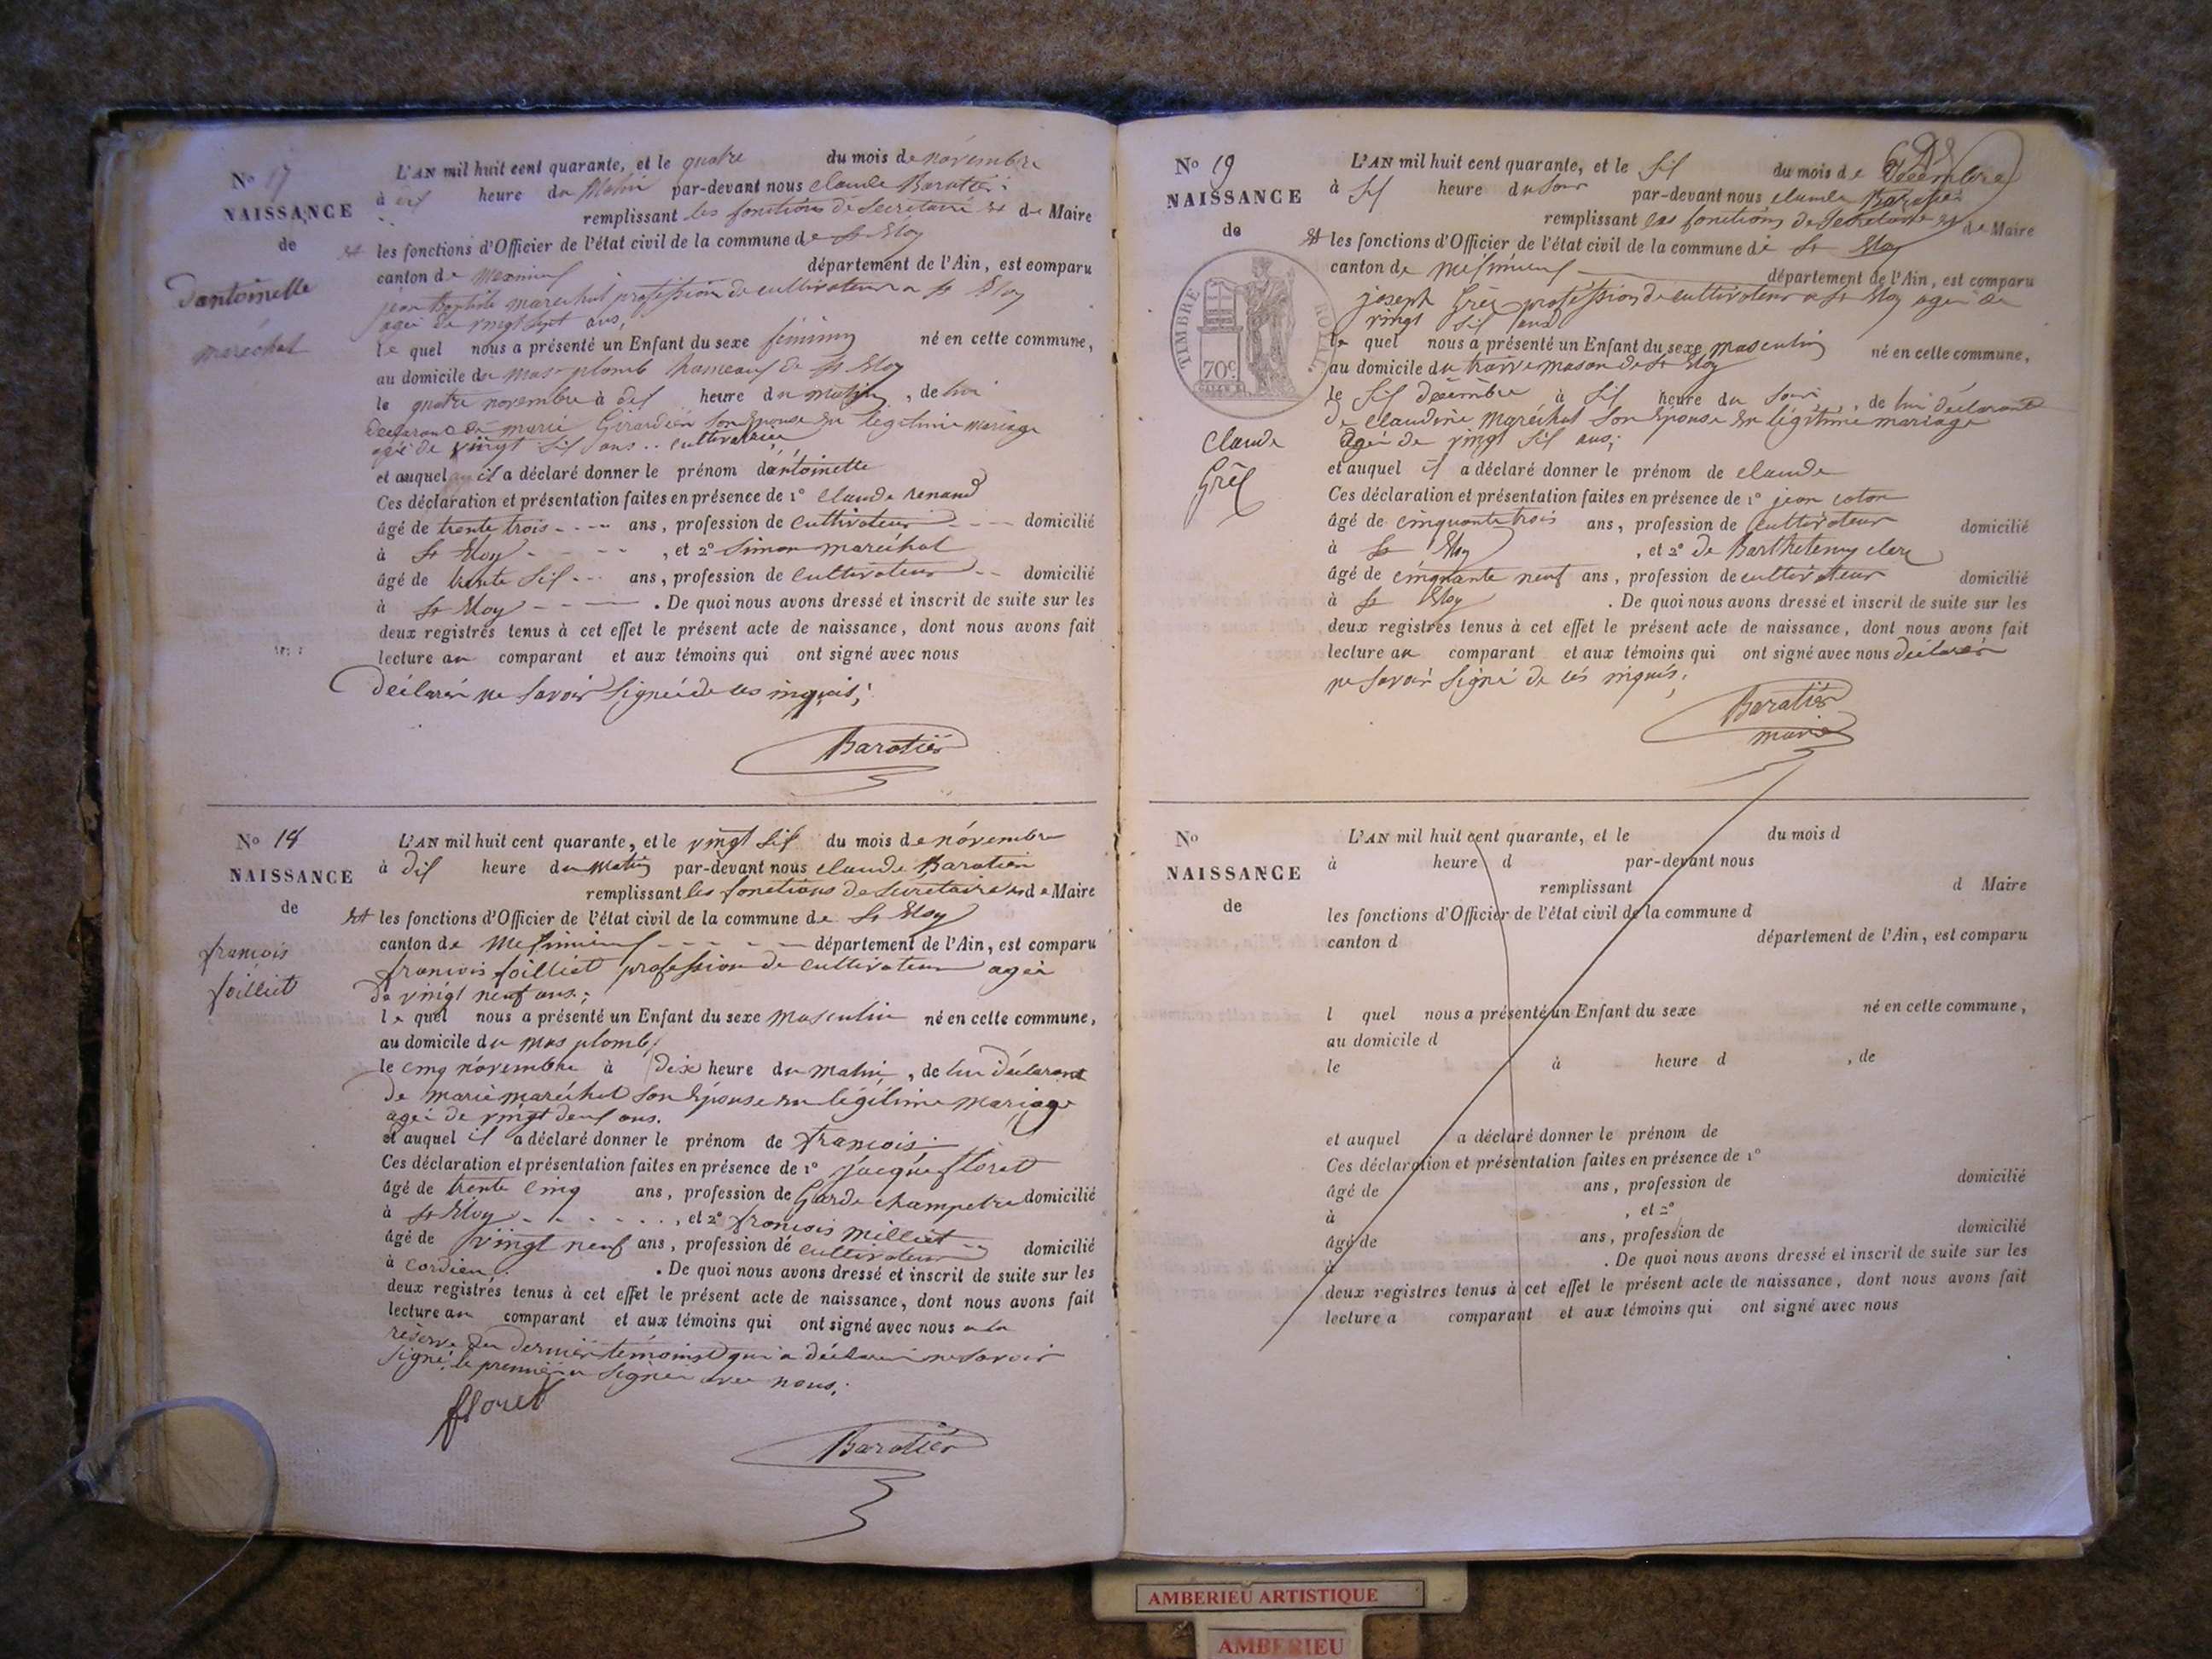 No 17
NAISSANCE
de
Dantoinette
maréchal
L'AN mil huit cent quarante, et le quatre du mois de novembre
à heure du Matin par-devant nous claude Baratier
remplissant les fonctions de Secretaire de Maire
et les fonctions d'Officier de l'état civil de la commune de St Eloy
canton de Meximieux département de l'Ain, est comparu
jean Baptiste marechal profession de cultivateur a St Eloy
agée de vingt sept ans,
le quel nous a présenté un Enfant du sexe féminin né en cette commune,
au domicile du mas plomb hameaux de St Eloy
le quatre novembre à dix heure du matin, de lui
declarant de marie Girardin son épouse en legitime mariage
agé de vingt six ans .. cultivateur
et auquel il a déclaré donner le prénom dantoinette
Ces déclaration et présentation faites en présence de 1° claude renaud
âgé de trente trois ---- ans, profession de cultivateur --- domicilié
à St Eloy - - - -, et 2° Simon maréchal
âgé de trente Six --- ans, profession de cultivateur -- domicilié
à St Eloy - - - . De quoi nous avons dressé et inscrit de suite sur les
deux registres tenus à cet effet le présent acte de naissance, dont nous avons fait
lecture au comparant et aux témoins qui ont signé avec nous
déclaréé ne Savoir Signéé de ces inquis;
Baratier
No 18
NAISSANCE
de
françois
foilliet
L'AN mil huit cent quarante, et le vingt Six du mois de novembre
à dix heure du Matin par-devant nous claude Baratier
remplissant les fonctions de Secretaire de Maire
et les fonctions d'Officier de l'état civil de la commune de St Eloy
canton de Messimieux - - - - département de l'Ain, est comparu
françois foilliet profession de cultivateur agée
de vingt neuf ans;
le quel nous a présenté un Enfant du sexe masculin né en cette commune,
au domicile du mas plomb
le cinq novembre à Dix heure du matin, de lui déclarant
de marie maréchal son Epouse en légitime mariage
agée de vingt deux ans.
et auquel il a déclaré donner le prénom de françois;
Ces déclaration et présentation faites en présence de 1° jacque floret
âgé de trente Cinq ans, profession de Garde champetre domicilié
à St Eloy - - - - - -, et 2° françois milliet
âgé de vingt neuf ans, profession de cultivateur domicilié
à cordieu. . De quoi nous avons dressé et inscrit de suite sur les
deux registres tenus à cet effet le présent acte de naissance, dont nous avons fait
lecture au comparant et aux témoins qui ont signé avec nous a la
réserve du dernier témoins qui a déclaréé ne savoir
Signé, le premier a Signéé avec nous;
floret
Baratier
No 19
NAISSANCE
de
TIMBRE ROYAL
70c.
claude
Grêl
L'AN mil huit cent quarante, et le Six du mois de décembre
à Six heure du Soir par-devant nous claude Baratier
remplissant les fonctions de Secretaire de Maire
et les fonctions d'Officier de l'état civil de la commune de St Eloy
canton de Messimieux département de l'Ain, est comparu
joseph Grêl profession de cultivateur a St Eloy agée de
vingt Six ans
le quel nous a présenté un Enfant du sexe masculin né en cette commune,
au domicile du mason de St Eloy
le Six décembre à Six heure du Soir, de lui déclarant
de claudine Maréchal Son Epouse En légitime mariage
Agée de vingt Six ans;
et auquel il a déclaré donner le prénom de claude
Ces déclaration et présentation faites en présence de 1° jean coton
âgé de cinquante trois ans, profession de cultivateur domicilié
à St Eloy, et 2° de Barthelemy clerc
âgé de cinquante neuf ans, profession de cultivateur domicilié
à St Eloy . De quoi nous avons dressé et inscrit de suite sur les
deux registres tenus à cet effet le présent acte de naissance, dont nous avons fait
lecture au comparant et aux témoins qui ont signé avec nous déclaréé
ne Savoir Signé de cés inquis;
Baratier
maire
No
NAISSANCE
de
L'AN mil huit cent quarante, et le du mois d
à heure d par-devant nous
remplissant d Maire
les fonctions d'Officier de l'état civil de la commune d
canton d département de l'Ain, est comparu
l quel nous a présenté un Enfant du sexe né en cette commune,
au domicile d
le à heure d , de
et auquel a déclaré donner le prénom de
Ces déclaration et présentation faites en présence de 1°
âgé de ans, profession de domicilié
à , et 2°
âgé de ans, profession de domicilié
à . De quoi nous avons dressé et inscrit de suite sur les
deux registres tenus à cet effet le présent acte de naissance, dont nous avons fait
lecture a comparant et aux témoins qui ont signé avec nous
AMBERIEU ARTISTIQUE
AMBERIEU